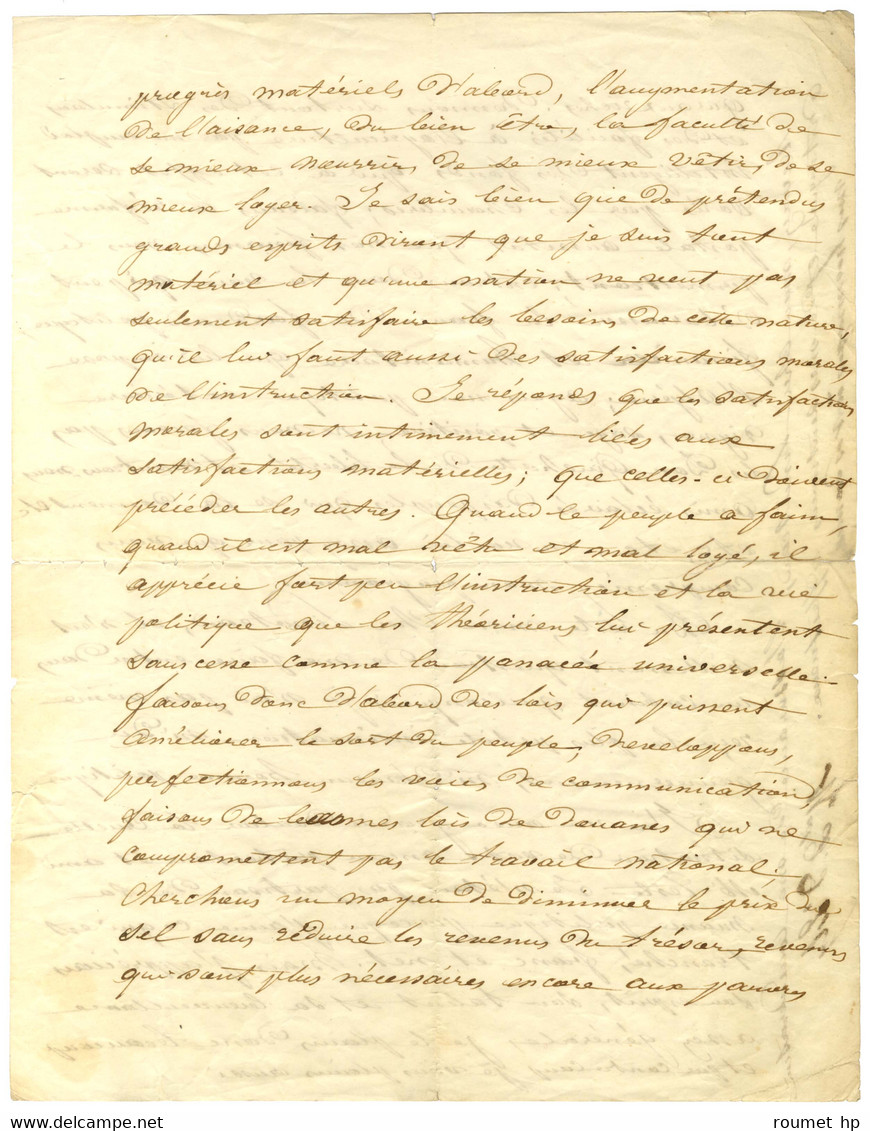 progrès matériels d'abord, l'augmentation
de l'aisance, du bien être, la faculté de
se mieux nourrir, de se mieux vêtir, de se
mieux loger. Je sais bien que de prétendus
grands esprits diront que je suis tout
matériel et qu'une nation ne veut pas
seulement satisfaire les besoins de cette nature,
qu'il lui faut aussi des satisfactions morales
de l'instruction. Je réponds que les satisfactions
morales sont intimement liées aux
satisfactions matérielles; que celles-ci doivent
précéder les autres. Quand le peuple a faim,
quand il est mal vêtu et mal logé, il
apprécie fort peu l'instruction et la vie
politique que les théoriciens lui présentent
sans cesse comme la panacée universelle.
faisons donc d'abord des lois qui puissent
améliorer le sort du peuple, developpons,
perfectionnons les voies de communication,
faisons de bonnes lois de douanes qui ne
compromettent pas le travail national;
cherchons un moyen de diminuer le prix du
sel sans réduire les revenus du trésor, revenus
qui sont plus nécessaires encore aux pauvres
www.delcampe.net
roumet hp